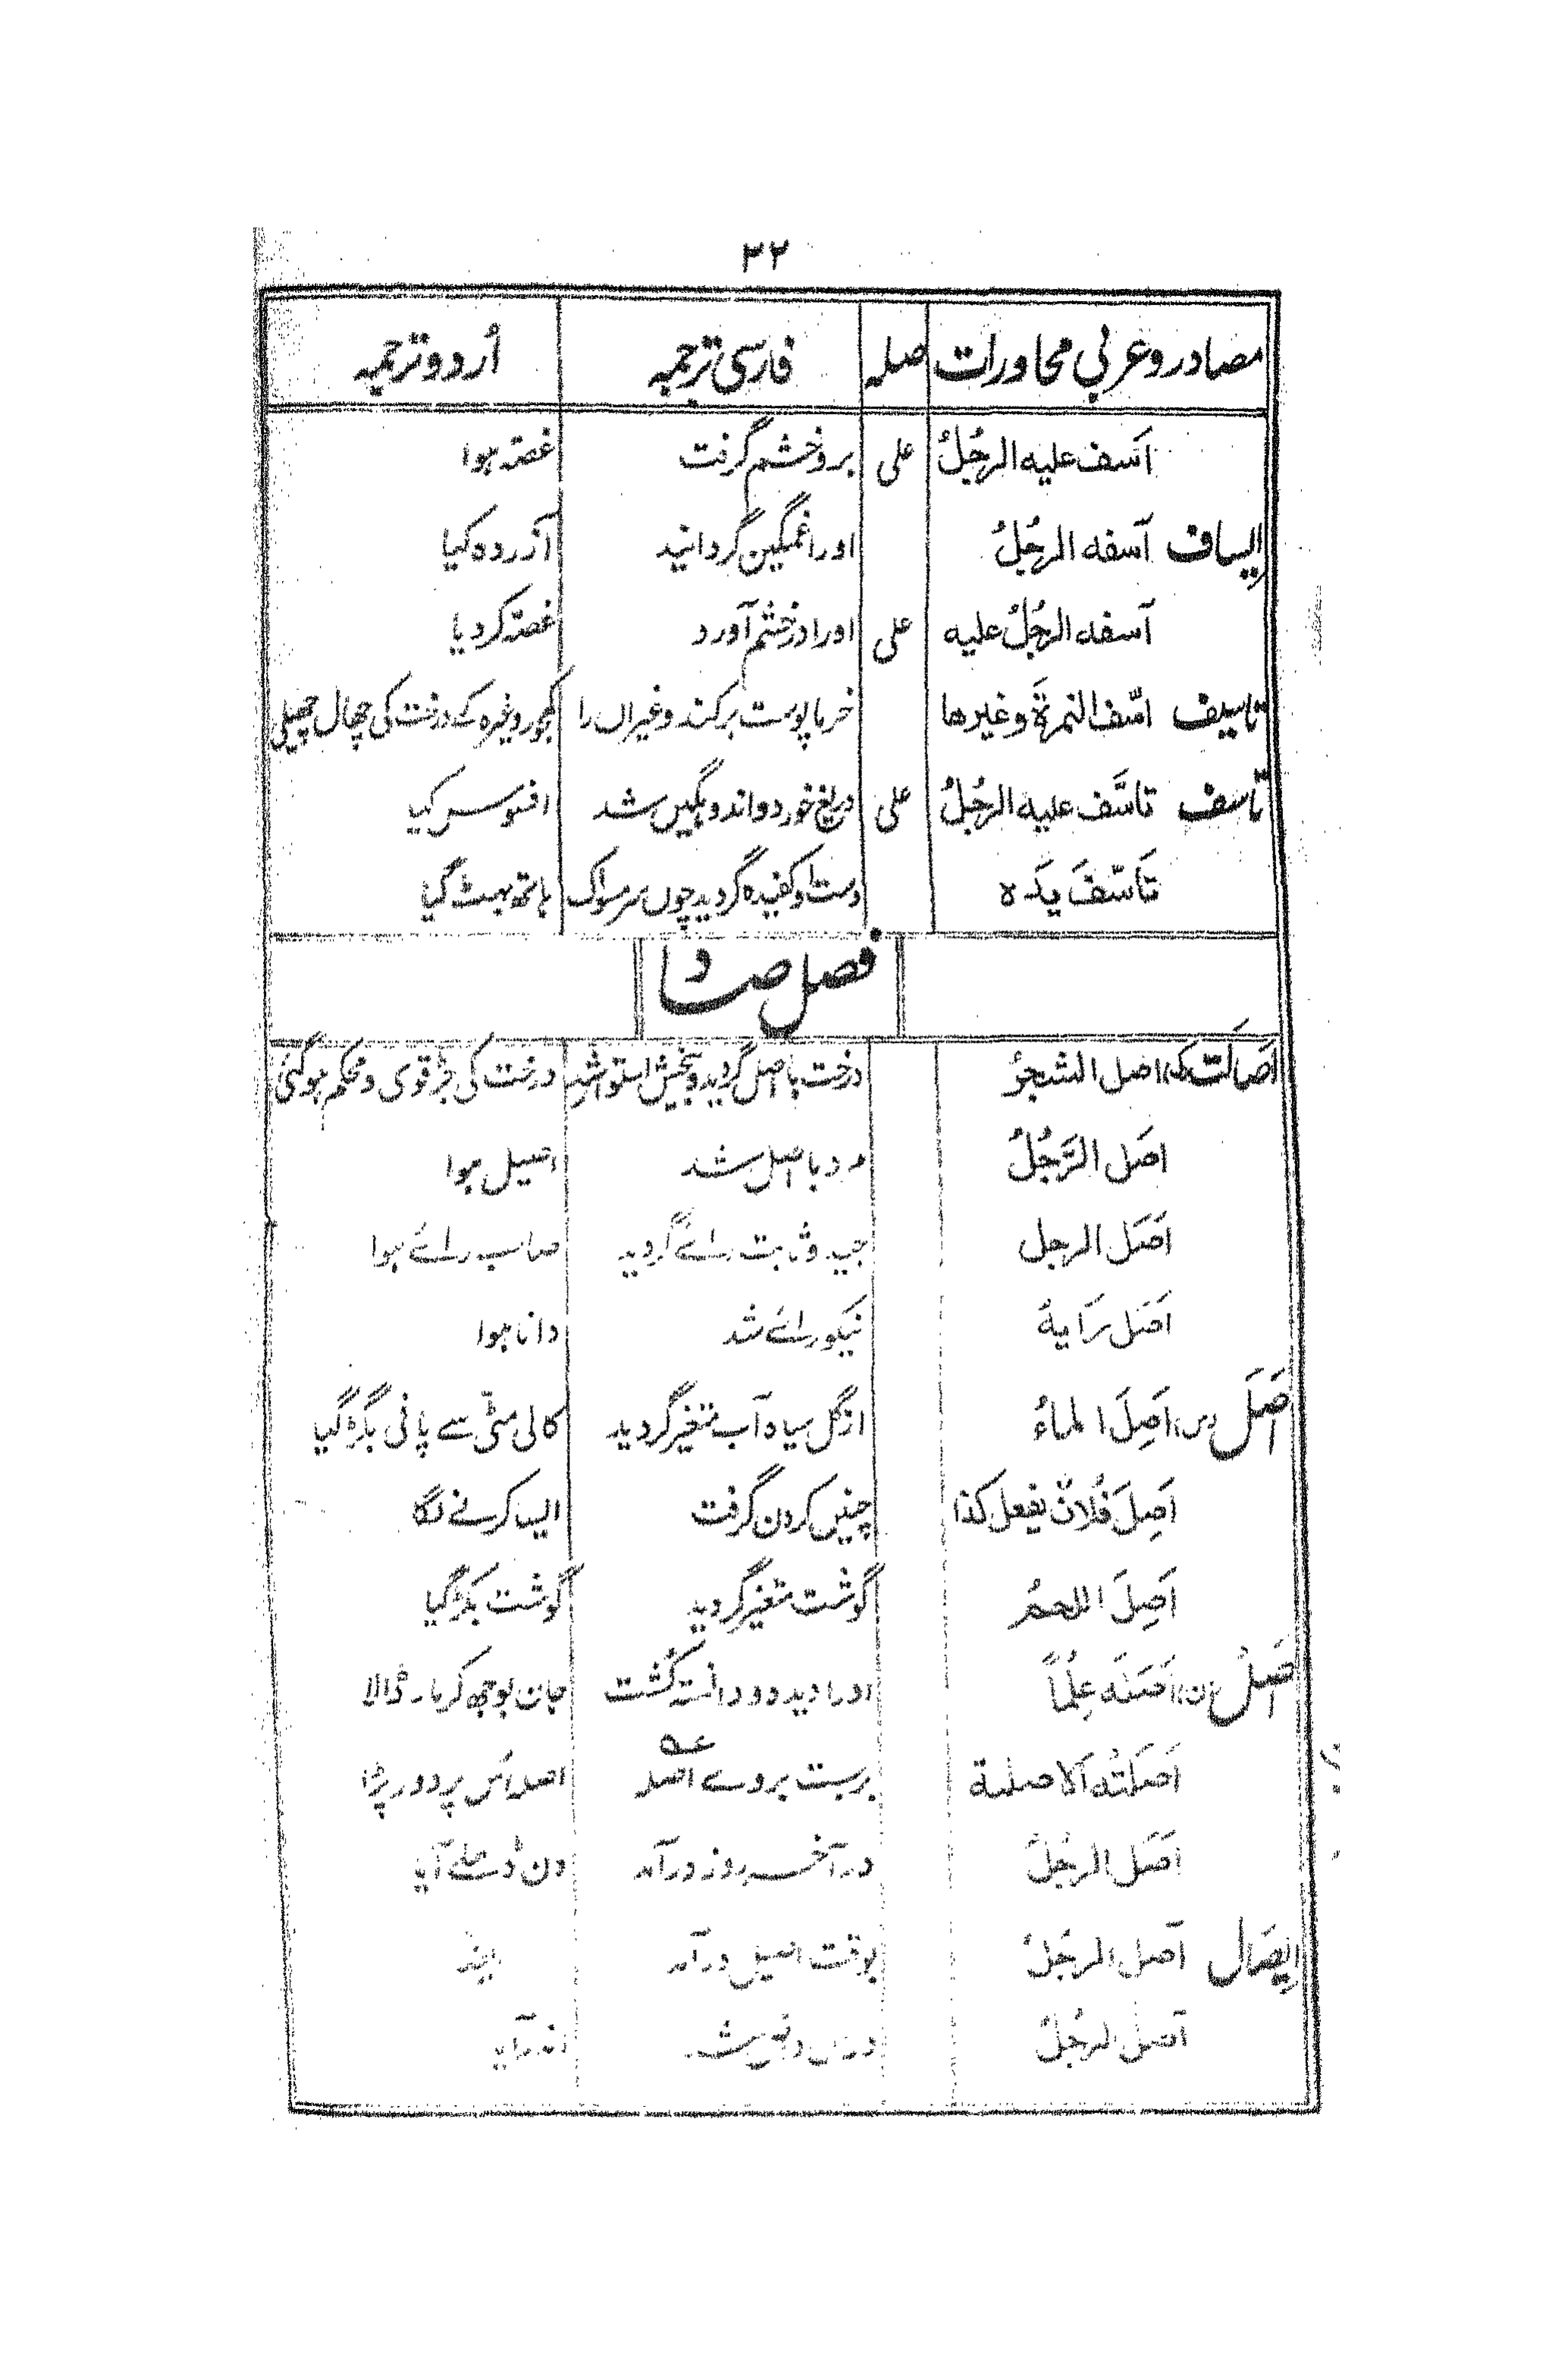 ۳۲
مصادر و عربی محاورات صلہ فارسی ترجمہ اُردو ترجمہ
اَسف علیه الرجُلُ علی برو خشم گرفت غصّہ ہوا
اِیساف آسفه الرجُلُ اورا غمگین گردانید آزردہ کیا
آسفه الرجُلُ علیه علی اورا درخشم آورد غصّہ کردیا
تاسیف اسّف التمرةَ وغیرها خرما پوست برکند وغیرآں را کھجور وغیرہ کے درخت کی چھال چھیلی
تاسف تاسَّف علیه الرجُلُ علی دریغ خورد و اندوہگیں شد افسوس کیا
تَاَسّفَ یدَه دست او کفیدہ گردید چوں سر مسواک ہاتھ پھٹ گیا
فصل صاد
اَصَالَت (ک) اصل الشجرُ درخت با اصل گردید و بیخش استوار شد درخت کی جڑ قوی و محکم ہوگئی
اصَل الرَّجُلُ مرد با اصل شد اصیل ہوا
اَصَل الرجل جید و ثابت رائے گردید صاحب رائے ہوا
اَصَل رَایهُ نیکو رائے شد دانا ہوا
اَصَل (س) اَصِلَ الماءُ از گل سیاہ آب متغیر گردید کالی مٹی سے پانی بگڑ گیا
اَصِلَ فُلانٌ یفعل کذا چنیں کردن گرفت ایسا کرنے لگا
اَصِلَ اللحمُ گوشت متغیر گردید گوشت بگڑ گیا
اَصْلٌ (ن) اَصَلَه عِلْماً اورا دیدہ و دانستہ کُشت جان بوجھ کر مار ڈالا
اَصَلَتْه الاصلة برجست بروے اصلہ اصلہ اُس پر دوڑ پڑا
اَصَل الرجُلُ درآخر روز درآمد دن ڈھلے آیا
اِیصَال آصل الرجُلُ بوقت اصیل درآمد ایضاً
آصل الرجُلُ